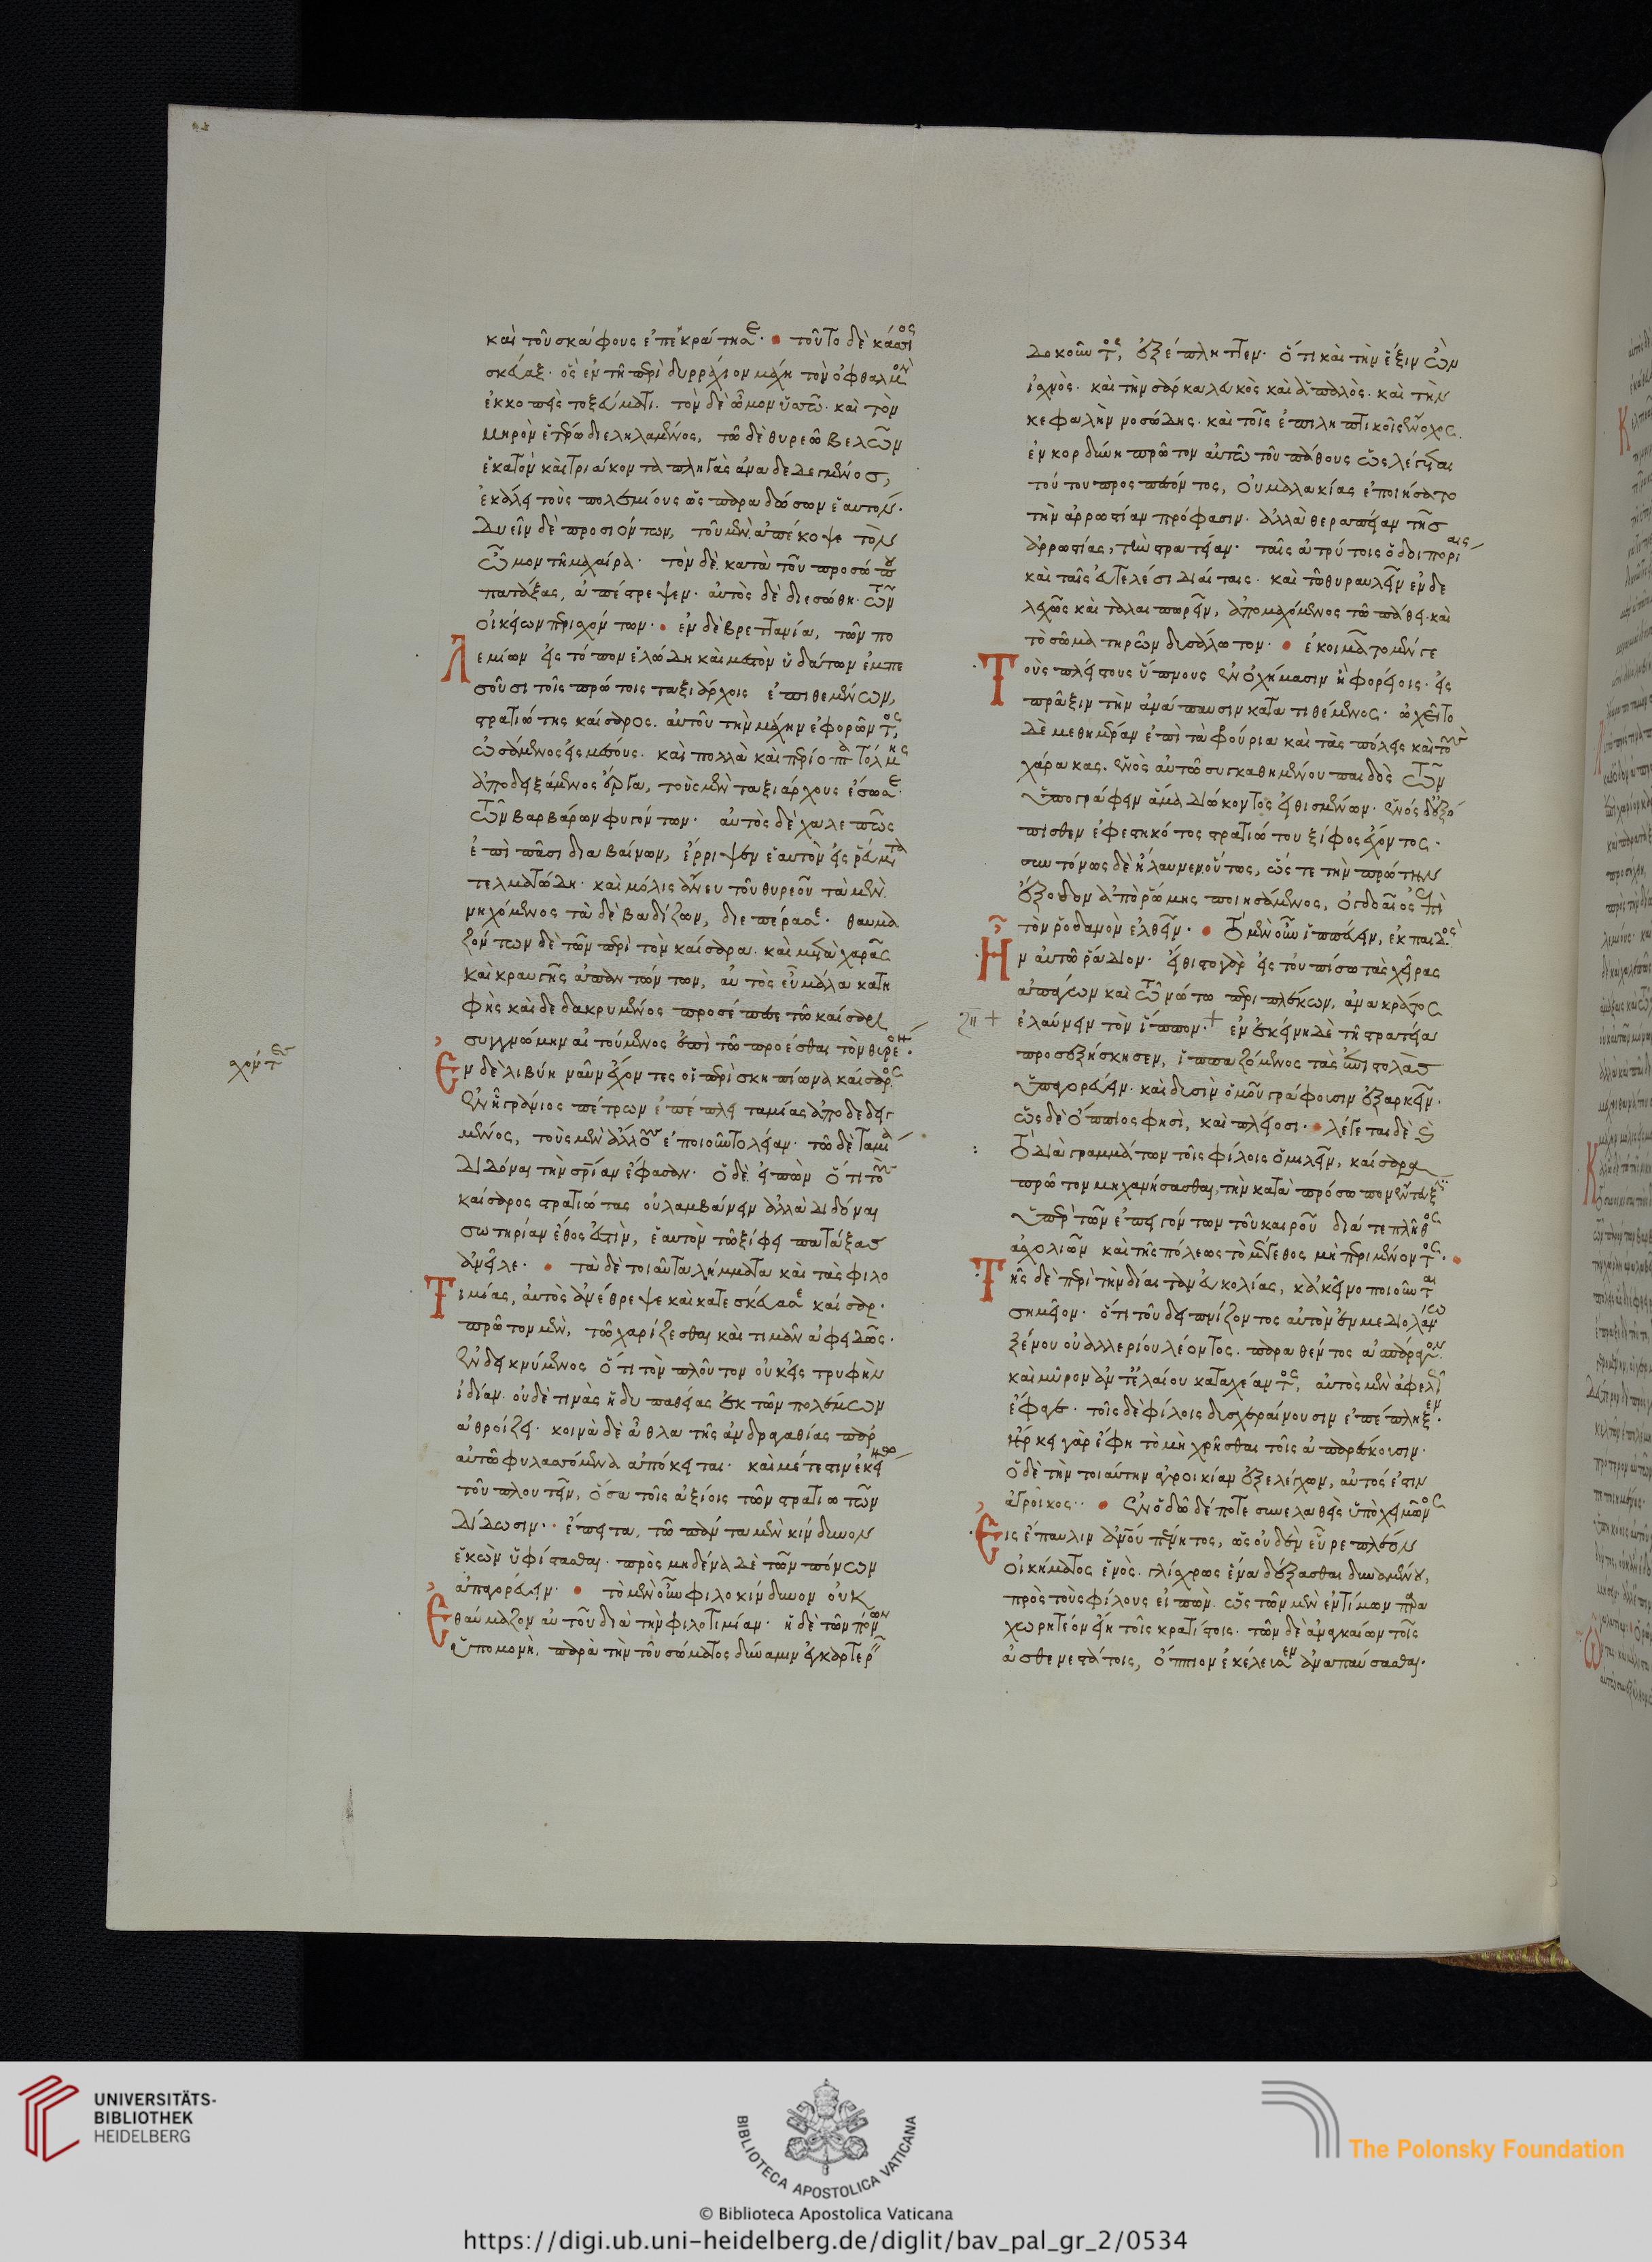 καὶ τοῦ σκάφους ἐπεκράτησε. τοῦτο δὲ κάσσιος
σκεύας. ὃς ἐν τῆ περὶ δυρράχιον μάχη τὸν ὀφθαλμὸν
ἐκκοπεὶς τοξεύματι. τὸν δὲ ὦμον ὑσσῶ. καὶ τὸν
μηρὸν ἑτέρω διεληλαμένος, τῶ δὲ θυρεῶ βελῶν
ἑκατὸν καὶ τριάκοντα πληγὰς ἀναδεδεγμένος,
ἐκάλει τοὺς πολεμίους ὡς παραδώσων ἑαυτόν.
δυεῖν δὲ προσιόντων, τοῦ μὲν ἀπέκοψε τὸν
ὦμον τῆ μαχαίρα. τὸν δὲ κατὰ τοῦ προσώπου
πατάξας, ἀπέστρεψεν. αὐτὸς δὲ διεσώθη. τῶν
οἰκείων περισχόντων. ἐν δὲ βρεττανία, τῶν πο
λεμίων εἰς τόπον ἑλώδη καὶ μεστὸν ὑδάτων ἐμπε
σοῦσι τοῖς πρώτοις ταξιάρχοις ἐπιθεμένων,
στρατιώτης καίσαρος. αὐτοῦ τὴν μάχην ἐφορῶντος,
ὠσάμενος εἰς μέσους. καὶ πολλὰ καὶ περίοπτα τόλμης
ἀποδειξάμενος ἔργα, τοὺς μὲν ταξιάρχους ἔσωσε.
τῶν βαρβάρων φυγόντων. αὐτὸς δὲ χαλεπῶς
ἐπὶ πᾶσι διαβαίνων, ἔρριψεν ἑαυτὸν εἰς ῥεύματα
τελματώδη. καὶ μόλις ἄνευ τοῦ θυρεοῦ τὰ μὲν
νηχόμενος τὰ δὲ βαδίζων, διεπέρασε. θαυμα
ζόντων δὲ τῶν περὶ τὸν καίσαρα. καὶ μετὰ χαρᾶς
καὶ κραυγῆς ἀπαντώντων, αὐτὸς εὖ μάλα κατη
φὴς καὶ δεδακρυμένος προσέπεσε τῶ καίσαρι
συγγνώμην αἰτούμενος ἐπὶ τῶ προέσθαι τὸν θυρεόν.
Ἐν δὲ λιβύη ναῦν ἔχοντες οἱ περὶ σκηπίωνα καίσαρος
ἐν ἧ γράνιος πέτρων ἐπέπλει ταμίας ἀποδεδειγ
μένος, τοὺς μὲν ἄλλους ἐποιοῦντο λείαν. τῶ δὲ ταμία
διδόναι τὴν σωτηρίαν ἔφασαν. ὁ δὲ εἰπὼν ὅτι τοῖς
καίσαρος στρατιώτας οὐ λαμβάνειν ἀλλὰ διδόναι
σωτηρίαν ἔθος ἐστὶν, ἑαυτὸν τῶ ξίφει πατάξας
ἀνεῖλε. τὰ δὲ τοιαῦτα λήμματα καὶ τὰς φιλο
τιμίας, αὐτὸς ἀνέθρεψε καὶ κατεσκεύασε καίσαρ.
πρῶτον μὲν, τῶ χαρίζεσθαι καὶ τιμᾶν ἀφειδῶς.
ἐνδεικνύμενος ὅτι τὸν πλοῦτον οὐκ εἰς τρυφὴν
ἰδίαν. οὐδέ τινας ἡδυπαθείας ἐκ τῶν πολέμων
ἀθροίζει. κοινὰ δὲ ἆθλα τῆς ἀνδραγαθίας παρ
αὐτῶ φυλασσόμενα ἀπόκειται. καὶ μέτεστιν ἐκείνω
τοῦ πλουτεῖν, ὅσα τοῖς ἀξίοις τῶν στρατιωτῶν
δίδωσιν. ἔπειτα, τῶ πάντα μὲν κίνδυνον
ἑκὼν ὑφίστασθαι. πρὸς μηδένα δὲ τῶν πόνων
ἀπαγορεύειν. τὸ μὲν οὖν φιλοκίνδυνον οὐκ
ἐθαύμαζον αὐτοῦ διὰ τὴν φιλοτιμίαν. ἡ δὲ τῶν πόνων
ὑπομονὴ, παρὰ τὴν τοῦ σώματος δύναμιν ἐγκαρτερεῖν
δοκοῦντος, ἐξέπληττεν. ὅτι καὶ τὴν ἕξιν ὢν
ἰσχνὸς. καὶ τὴν σάρκα λευκὸς καὶ ἁπαλὸς. καὶ τὴν
κεφαλὴν νοσώδης. καὶ τοῖς ἐπιληπτικοῖς ἔνοχος.
ἐν κορδύβη πρῶτον αὐτῶ τοῦ πάθους ὡς λέγεται
τούτου προσπεσόντος, οὐ μαλακίας ἐποιήσατο
τὴν ἀρρωστίαν πρόφασιν. ἀλλὰ θεραπείαν τῆς
ἀρρωστίας, τὴν στρατείαν. ταῖς ἀτρύτοις ὁδοιπορίαις
καὶ ταῖς εὐτελέσι διαίταις. καὶ τῶ θυραυλεῖν ἐνδε
λεχῶς καὶ ταλαιπωρεῖν, ἀπομαχόμενος τῶ πάθει. καὶ
τὸ σῶμα τηρῶν δυσάλωτον. ἐκοιμᾶτο μέν γε
τοὺς πλείστους ὕπνους ἐν ὀχήμασιν ἢ φορείοις. εἰς
πρᾶξιν τὴν ἀνάπαυσιν κατατιθέμενος. ὠχεῖτο
δὲ μεθημέραν ἐπὶ τὰ φρούρια καὶ τὰς πόλεις καὶ τοὺς
χάρακας. ἑνὸς αὐτῶ συγκαθημένου παιδὸς τῶν
ὑπογράφειν ἅμα διώκοντος εἰθισμένων. ἑνὸς δ' ἐξό
πισθεν ἐφεστηκότος στρατιώτου ξίφος ἔχοντος.
συντόνως δὲ ἤλαυνεν οὕτως, ὥστε τὴν πρώτην
ἔξοδον ἀπὸ ῥώμης ποιησάμενος, ὀγδοαῖος ἐπὶ
τὸν ῥοδανὸν ἐλθεῖν. τὸ μὲν οὖν ἱππεύειν, ἐκ παιδὸς
ἦν αὐτῶ ῥάδιον. εἴθιστο γὰρ εἰς τοὐπίσω τὰς χεῖρας
ἀπάγων καὶ τῶ νώτω περιπλέκων, ἀνακράτος
ἐλαύνειν τὸν ἵππον. ἐν ἐκείνη δὲ τῆ στρατεία
προσεξήσκησεν, ἱππαζόμενος τὰς ἐπιστολὰς
ὑπαγορεύειν. καὶ δυσὶν ὁμοῦ γράφουσιν ἐξαρκεῖν.
ὡς δὲ ὄππιος φησὶ, καὶ πλείοσι. λέγεται δὲ καὶ
τὸ διὰ γραμμάτων τοῖς φίλοις ὁμιλεῖν, καίσαρα
πρῶτον μηχανήσασθαι, τὴν κατὰ πρόσωπον ἔντευξιν
ὑπὲρ τῶν ἐπειγόντων τοῦ καιροῦ διά τε πλῆθος
ἀσχολιῶν καὶ τῆς πόλεως τὸ μέγεθος μὴ περιμένοντος.
τῆς δὲ περὶ τὴν δίαιταν εὐκολίας, κἀκεῖνο ποιοῦνται
σημεῖον. ὅτι τοῦ δειπνίζοντος αὐτὸν ἐν μεδιολάνω
ξένου οὐαλλερίου λέοντος. παραθέντος ἀσπάραγον.
καὶ μύρον ἀντ' ἐλαίου καταχέαντος, αὐτὸς μὲν ἀφελῶς
ἔφαγε. τοῖς δὲ φίλοις δυσχεραίνουσιν ἐπέπληξεν.
ἤρκει γὰρ ἔφη τὸ μὴ χρῆσθαι τοῖς ἀπαρέσκουσιν.
ὁ δὲ τὴν τοιαύτην ἀγροικίαν ἐξελέγχων, αὐτός ἐστιν
ἄγροικος. ἐν ὁδῶ δέ ποτε συνελαθεὶς ὑπὸ χειμῶνος
εἰς ἔπαυλιν ἀν̅ου πένητος, ὡς οὐδὲν εὗρε πλέον
οἰκήματος ἑνὸς. γλίσχρως ἕνα δέξασθαι δυναμένου,
πρὸς τοὺς φίλους εἰπὼν. ὡς τῶν μὲν ἐντίμων παρα
χωρητέον εἴη τοῖς κρατίστοις. τῶν δὲ ἀναγκαίων τοῖς
ἀσθενεστάτοις, ὄππιον ἐκέλευσεν ἀναπαύσασθαι.
UNIVERSITÄTS-
BIBLIOTHEK
HEIDELBERG
BIBLIOTECA APOSTOLICA VATICANA
© Biblioteca Apostolica Vaticana
The Polonsky Foundation
https://digi.ub.uni-heidelberg.de/diglit/bav_pal_gr_2/0534